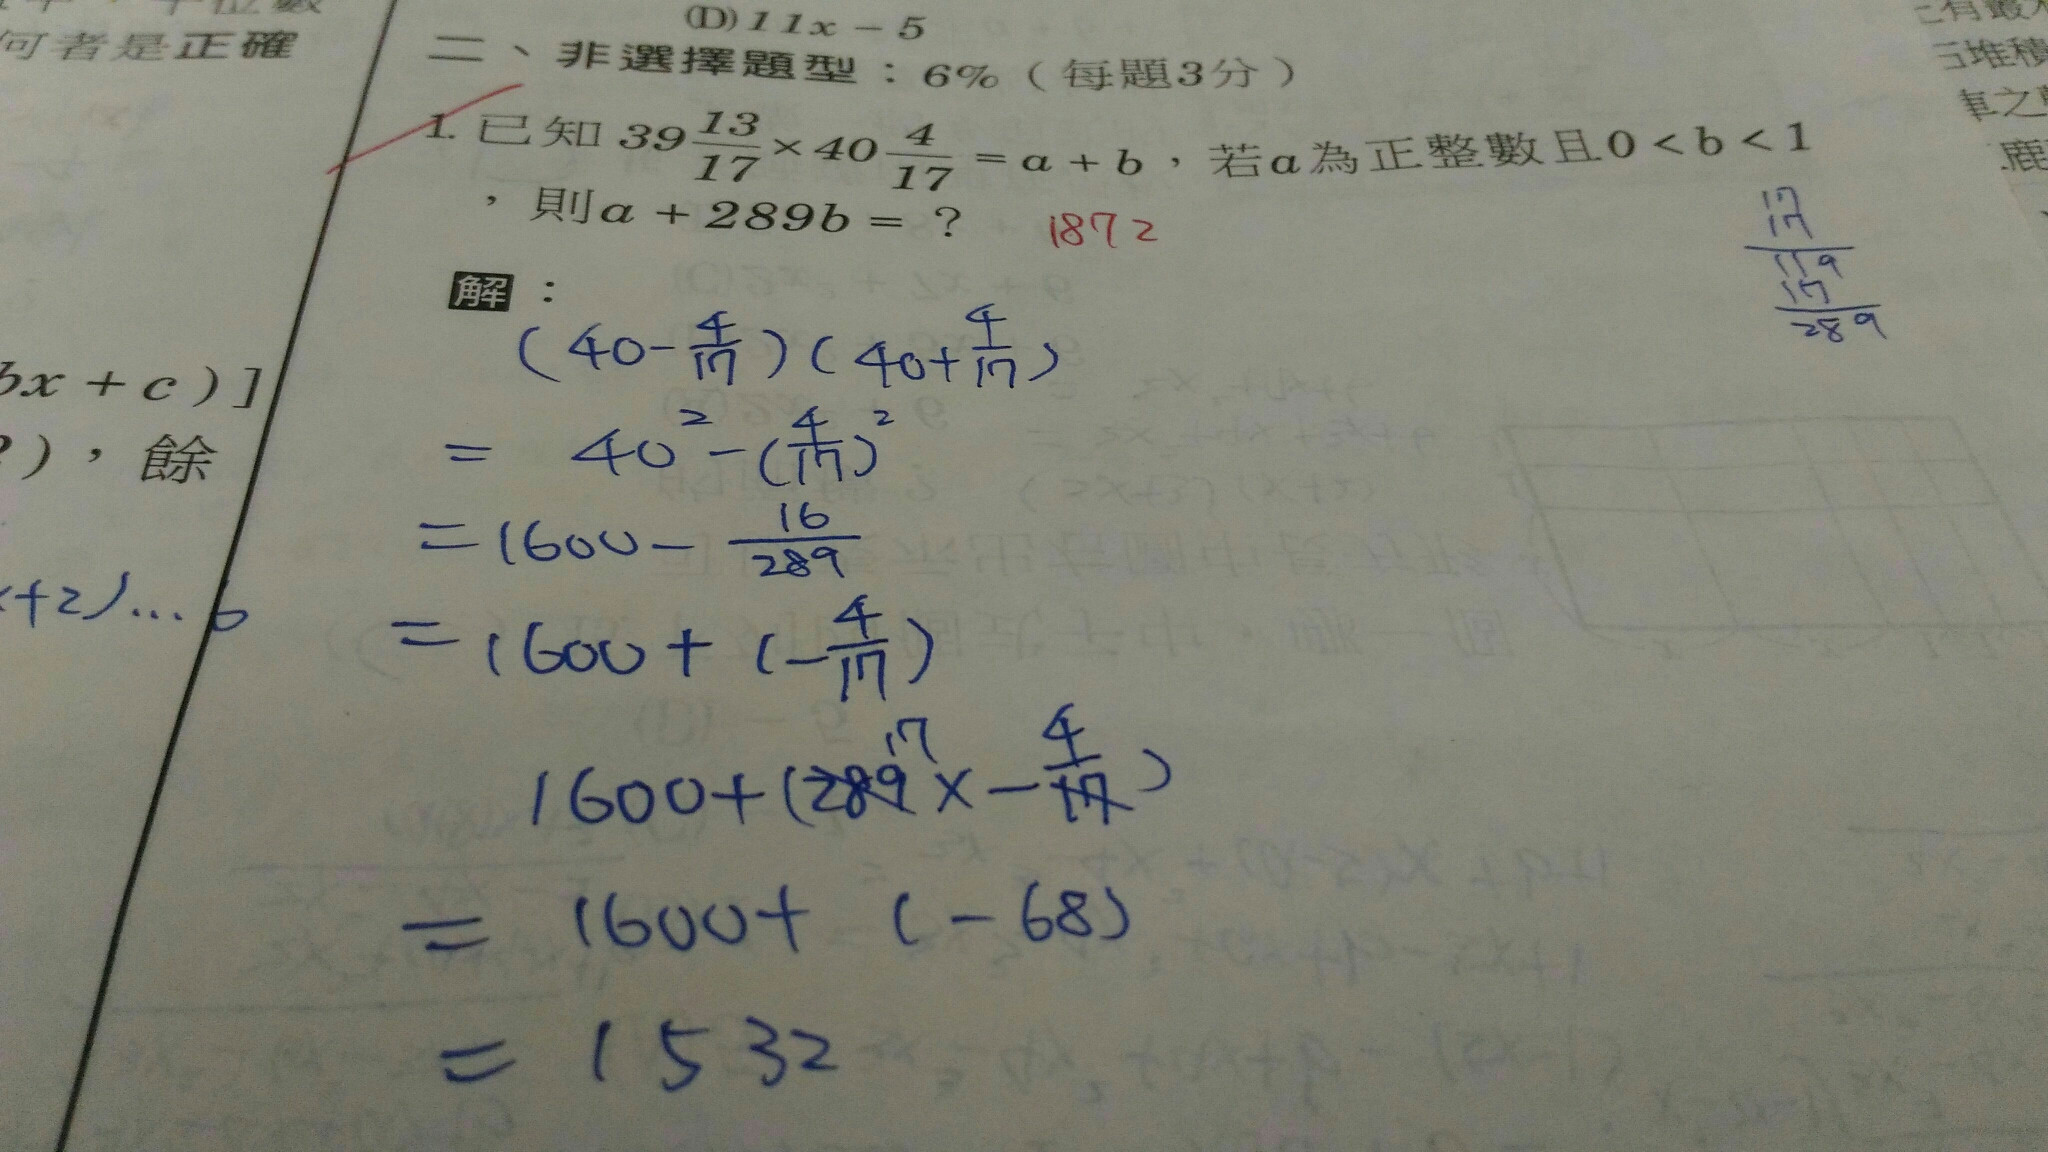 (D)11x－5
二、非選擇題型：6%（每題3分）
1. 已知 39 13/17 × 40 4/17 = a + b，若a為正整數且0 < b < 1
，則a + 289b = ？ 1872
解：
(40 - 4/17)(40 + 4/17)
= 40² - (4/17)²
= 1600 - 16/289
= 1600 + (-4/17)
1600 + (289 17 × - 4/17)
= 1600 + (-68)
= 1532
17
17
119
17
289
何者是正確
bx + c)]
)，餘
+2)... 0
堆積
車之
鹿